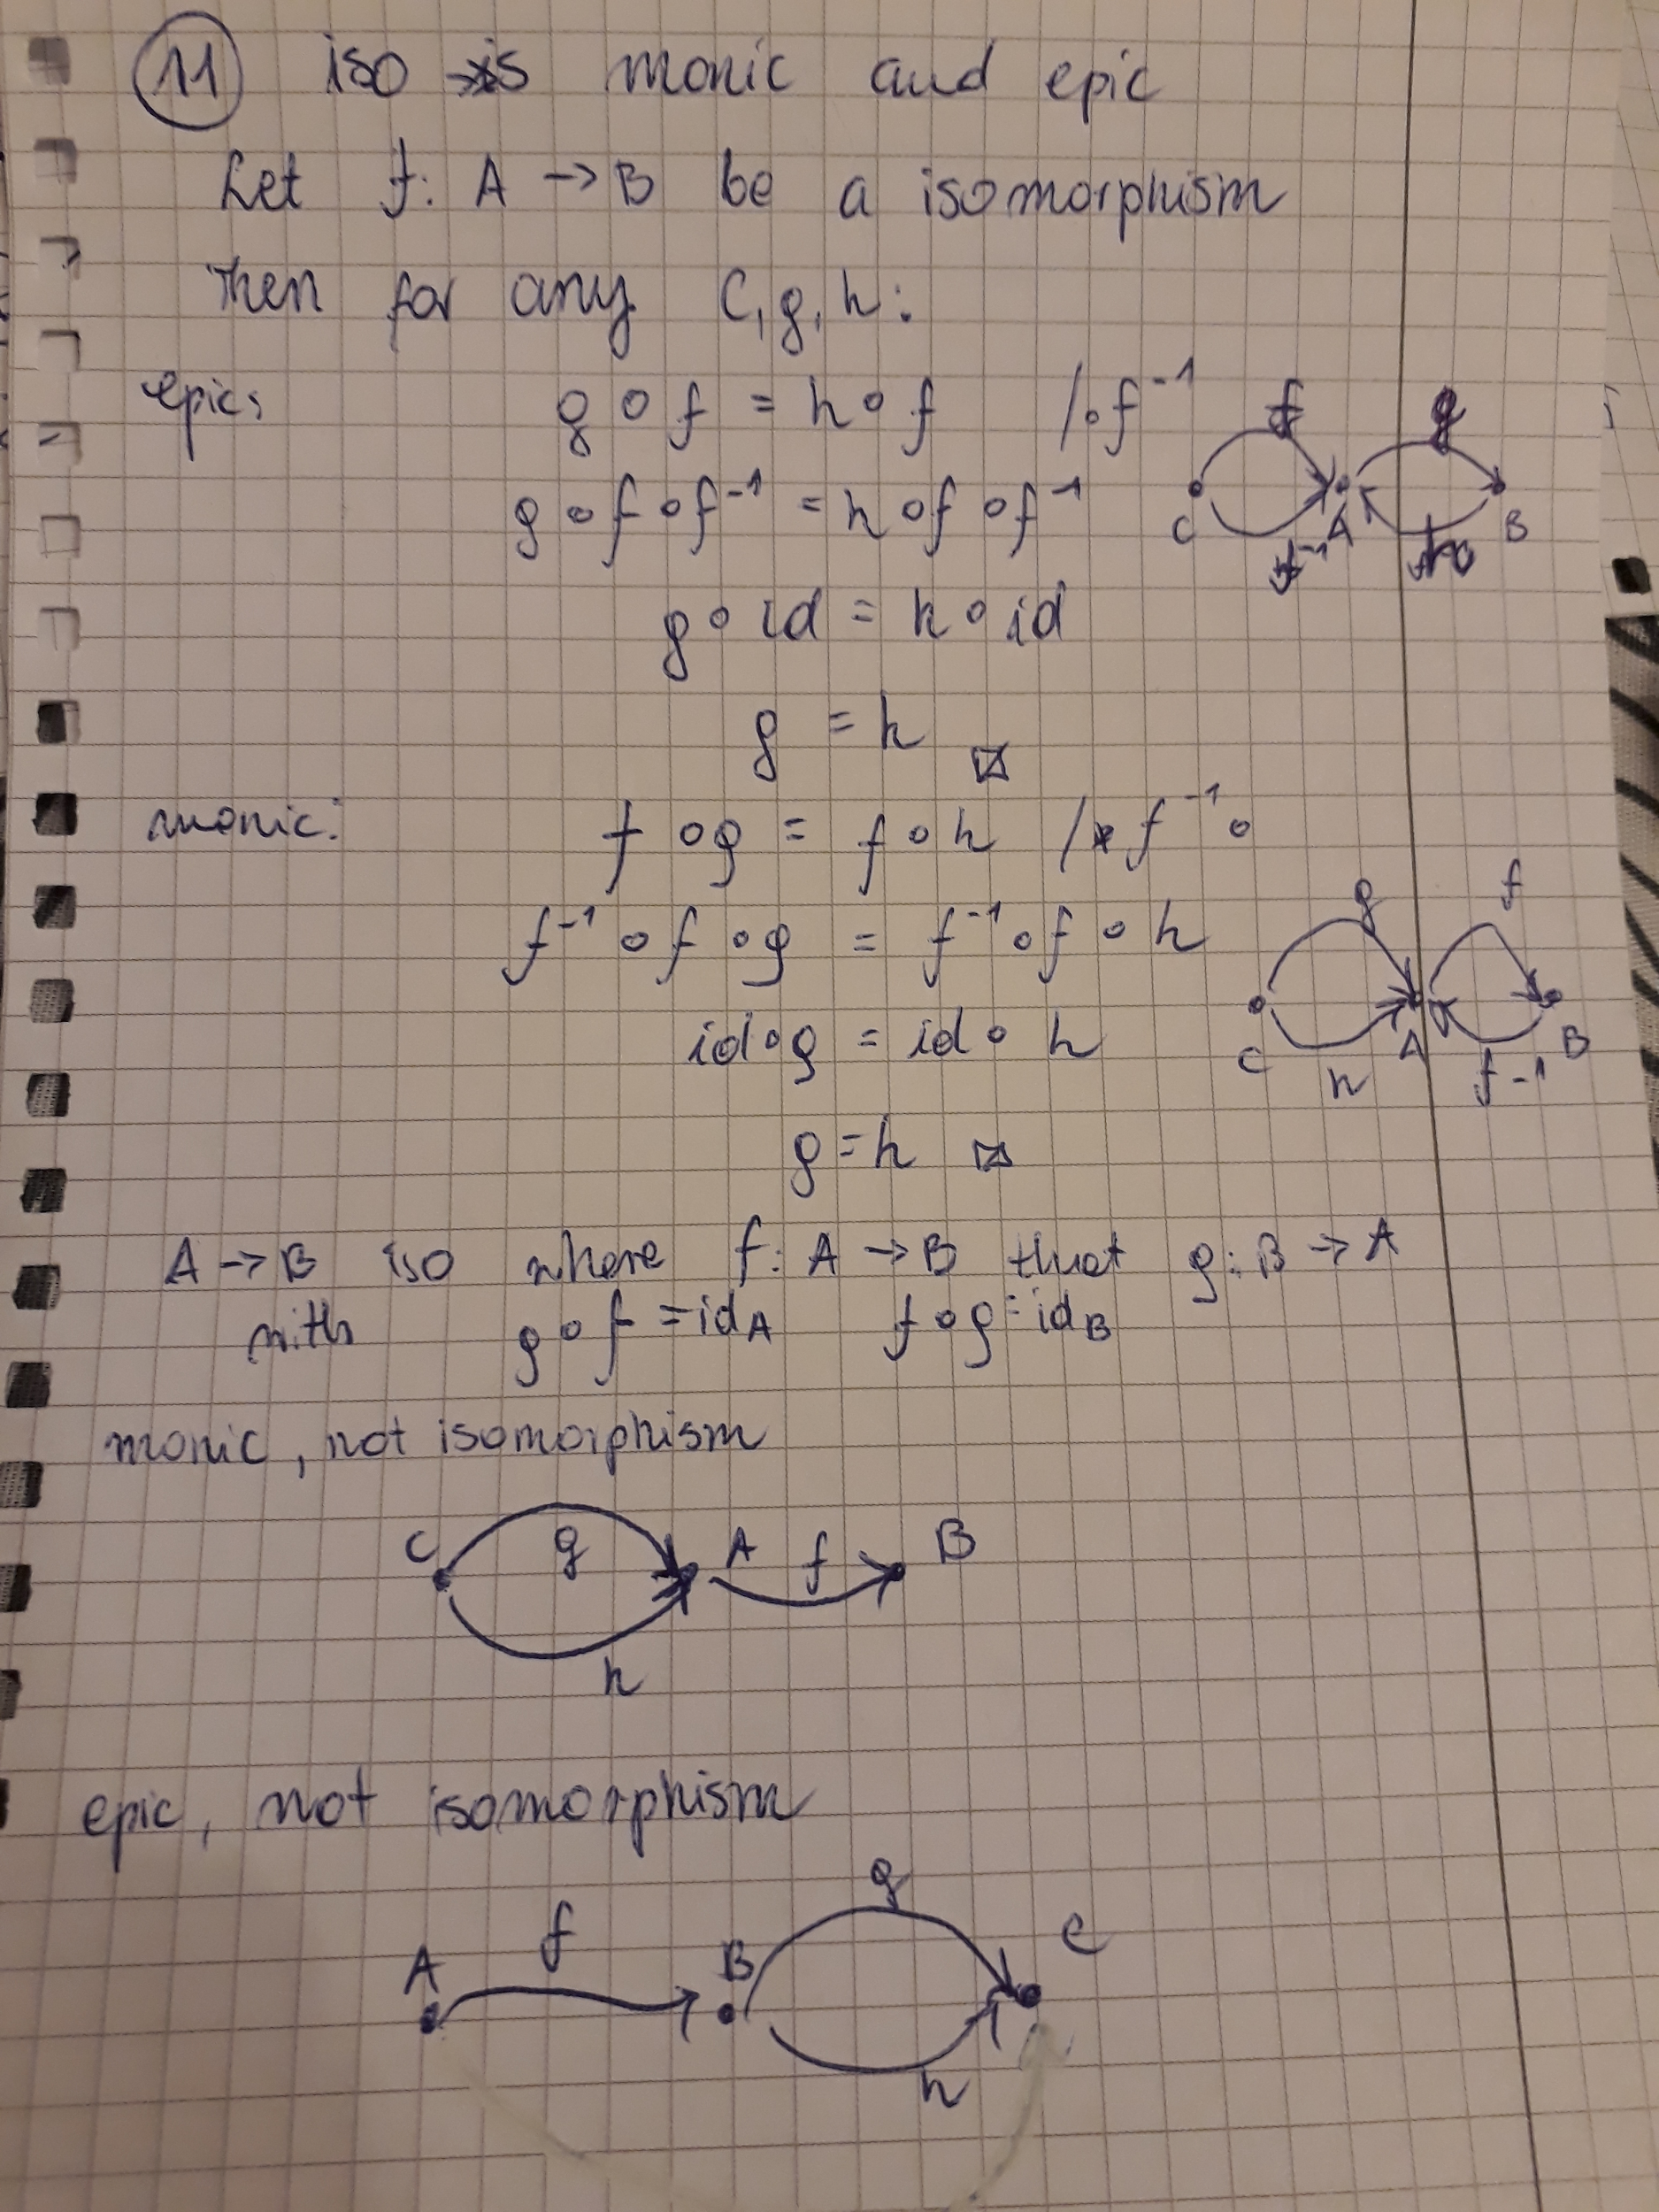 11 iso is monic and epic
Let f: A → B be a isomorphism
Then for any C, g, h:
epic: g ∘ f = h ∘ f /∘ f⁻¹
g ∘ f ∘ f⁻¹ = h ∘ f ∘ f⁻¹
C A B
f⁻¹
g ∘ id = h ∘ id
g = h
monic: f ∘ g = f ∘ h / f⁻¹ ∘
f⁻¹ ∘ f ∘ g = f⁻¹ ∘ f ∘ h
g f
id ∘ g = id ∘ h
C h A f⁻¹ B
g = h
A → B iso where f: A → B that g: B → A
with g ∘ f = id_A f ∘ g = id_B
monic, not isomorphism
C g A f B
h
epic, not isomorphism
g
A f B C
h